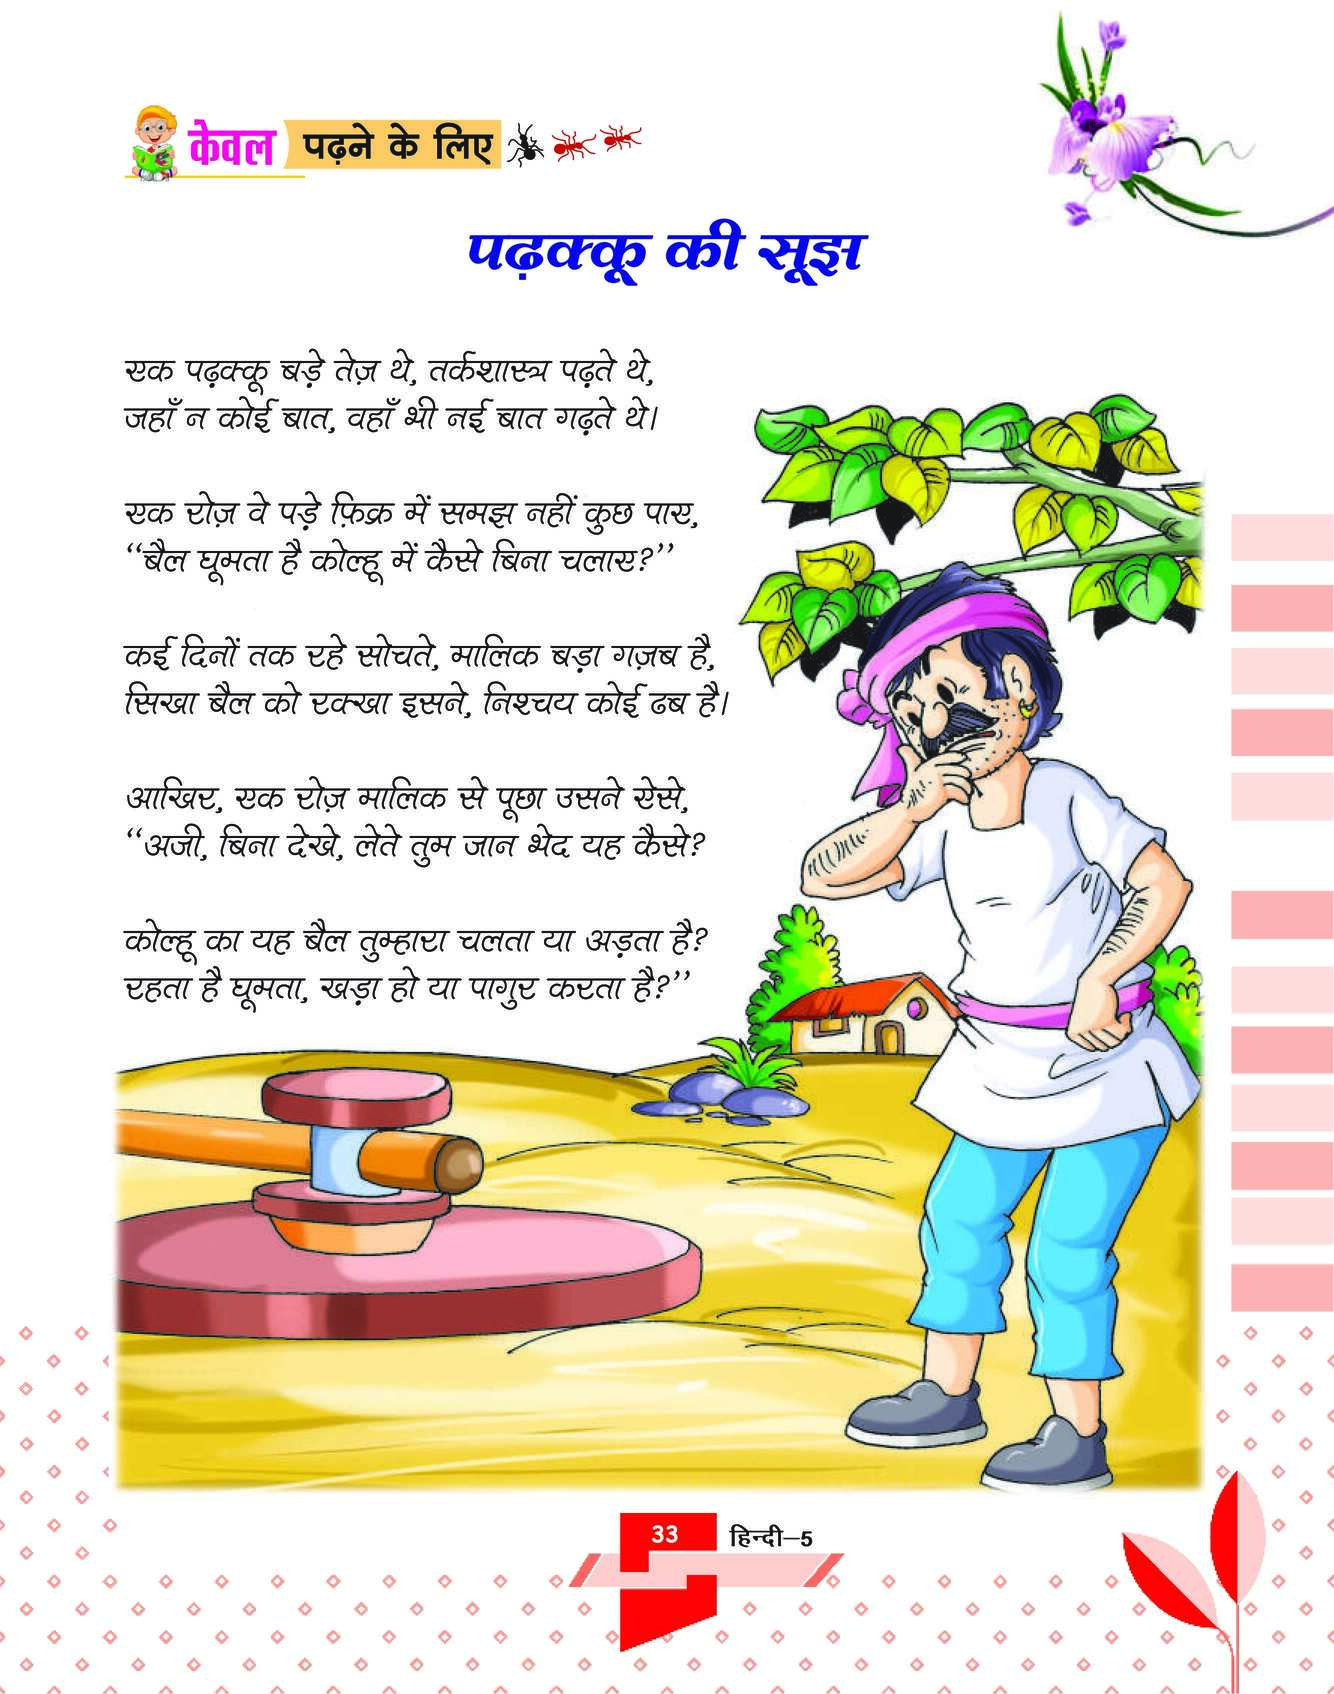 केवल पढ़ने के लिए
पढ़क्कू की सूझ
एक पढ़क्कू बड़े तेज़ थे, तर्कशास्त्र पढ़ते थे,
जहाँ न कोई बात, वहाँ भी नई बात गढ़ते थे।
एक रोज़ वे पड़े फ़िक्र में समझ नहीं कुछ पाए,
‘‘बैल घूमता है कोल्हू में कैसे बिना चलाए?’’
कई दिनों तक रहे सोचते, मालिक बड़ा गज़ब है,
सिखा बैल को रक्खा इसने, निश्चय कोई ढब है।
आखिर, एक रोज़ मालिक से पूछा उसने ऐसे,
‘‘अजी, बिना देखे, लेते तुम जान भेद यह कैसे?
कोल्हू का यह बैल तुम्हारा चलता या अड़ता है?
रहता है घूमता, खड़ा हो या पागुर करता है?’’
33 हिन्दी–5